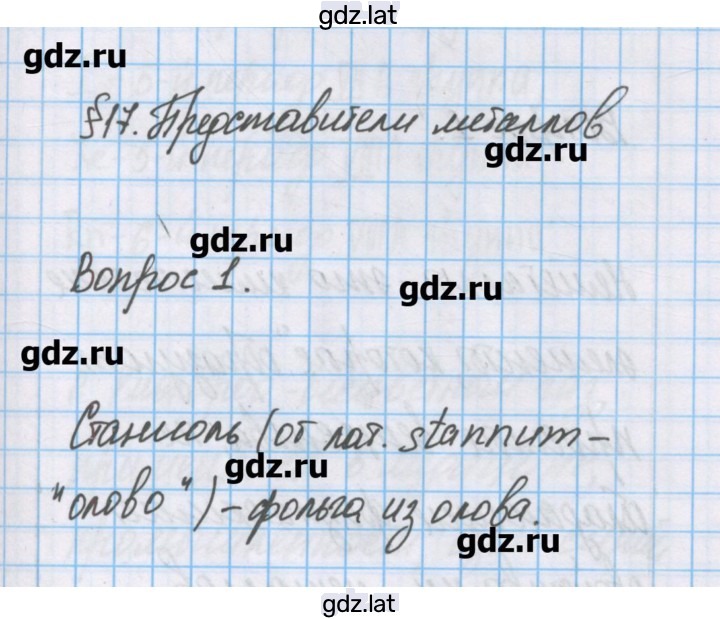 gdz.lat
gdz.ru
§17. Представители металлов
gdz.ru
gdz.ru
Вопрос 1.
gdz.ru
gdz.ru
Станиоль (от лат. stannum –
gdz.ru
"олово") – фольга из олова.
gdz.ru
gdz.lat